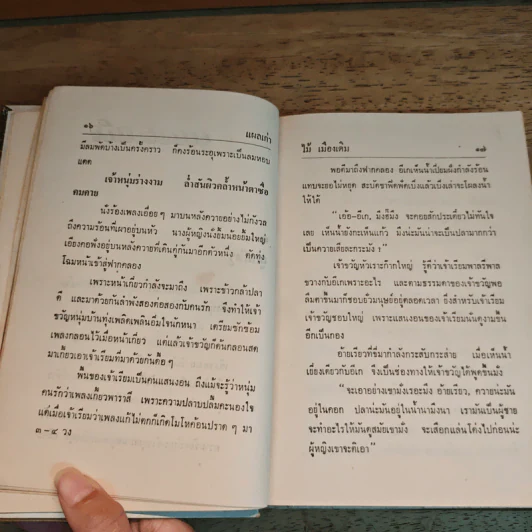 ๑๖
แผลเก่า
มีลมพัดบ้างเป็นครั้งคราว ก็คงร้อนระยุเพราะเป็นลมหอบ
แดด
เจ้าหนุ่มร่างงาม ล่ำสันผิวคล้ำหน้าตาซื่อ
คมคาย
นั่งร้องเพลงเอื่อย ๆ มาบนหลังควายอย่างไม่กังวล
ถึงความร้อนที่เผาอยู่บนหัว นางผู้หญิงนั้นยิ้มน้อยยิ้มใหญ่
เอียงคอฟังอยู่บนหลังควายที่เดินคู่กันมาอีกตัวหนึ่ง
โฉมหน้าเข้าสู่ฟากคลอง
เพราะหน้าเกี่ยวกำลังจะมาถึง เพราะข้าวกล้าปลา
ดี และมาด้วยกันลำพังสองต่อสองกับคนรัก จึงทำให้เจ้า
ขวัญหนุ่มบ้านทุ่งเพลิดเพลินยิ้มใจนักหนา เตรียมซักซ้อม
เพลงกลอนไว้เมื่อหน้าเกี่ยว แต่แล้วเจ้าขวัญก็ดั้นกลอนสด
มาเกี้ยวเอาเจ้าเรียมที่มาด้วยกันค่อย ๆ
พื้นของเจ้าเรียมเป็นคนแสนงอน ถึงแม้จะรู้ว่าหนุ่ม
คนรักว่าเพลงเกี้ยวพาราสี เพราะความปลาบปลื้มคะนองใจ
แต่เมื่อเจ้าเรียมว่าเพลงแก้ไม่ตกก็เกิดโมโหค้อนปราด ๆ มา
๓-๔ วง
ไม้ เมืองเดิม
๑๗
พอดีมาถึงฟากคลอง อีเกเห็นน้ำเปี่ยมฝั่งกำลังร้อน
แทบจะรอไม่หยุด สะบัดขาฟืดฟัดเบิ่งแล้วเบิ่งเล่าจะโผลงน้ำ
ให้ได้
"เอ้อ-อีเก, มึงก็มึง จะคอยสักประเดี๋ยวไม่ทันใจ
เลย เห็นน้ำยังกะเห็นแก้ว มึงน่ะมันน่าจะเป็นปลามากกว่า
เป็นควายเสียละกระมัง !"
เจ้าขวัญหัวเราะก๊ากใหญ่ รู้ดีว่าเจ้าเรียมพาลรีพาล
ขวางกับอีเกเพราะอะไร และตามธรรมดาของเจ้าขวัญพอ
ลืมตาขึ้นมาก็ชอบยั่วมนุษย์อยู่ตลอดเวลา ยิ่งสำหรับเจ้าเรียม
เจ้าขวัญชอบใหญ่ เพราะแสนงอนของเจ้าเรียมนั้นดูงามขึ้น
อีกเป็นกอง
อ้ายเรียวที่ขี่มากำลังกระสับกระส่าย เมื่อเห็นน้ำ
เยี่ยงเดียวกับอีเก จึงเป็นช่องทางให้เจ้าขวัญได้พูดขึ้นมั่ง
"จะเอาอย่างเขามั่งเรอะมึง อ้ายเรียว, ควายน่ะมัน
อยู่ในคอก ปลาน่ะมันอยู่ในน้ำนามึงนา เรามันเป็นผู้ชาย
จะทำอะไรให้มันดูสมัยเขามั่ง จะเสือกแล่นโค่งไปก่อนน่ะ
ผู้หญิงเขาจะติเอา"